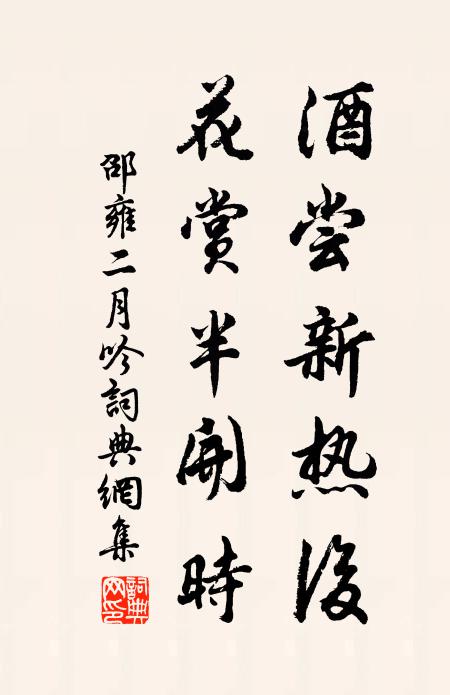 酒尝新热后
花赏半開時
邵雍二月吟詞典網集
詞典網印